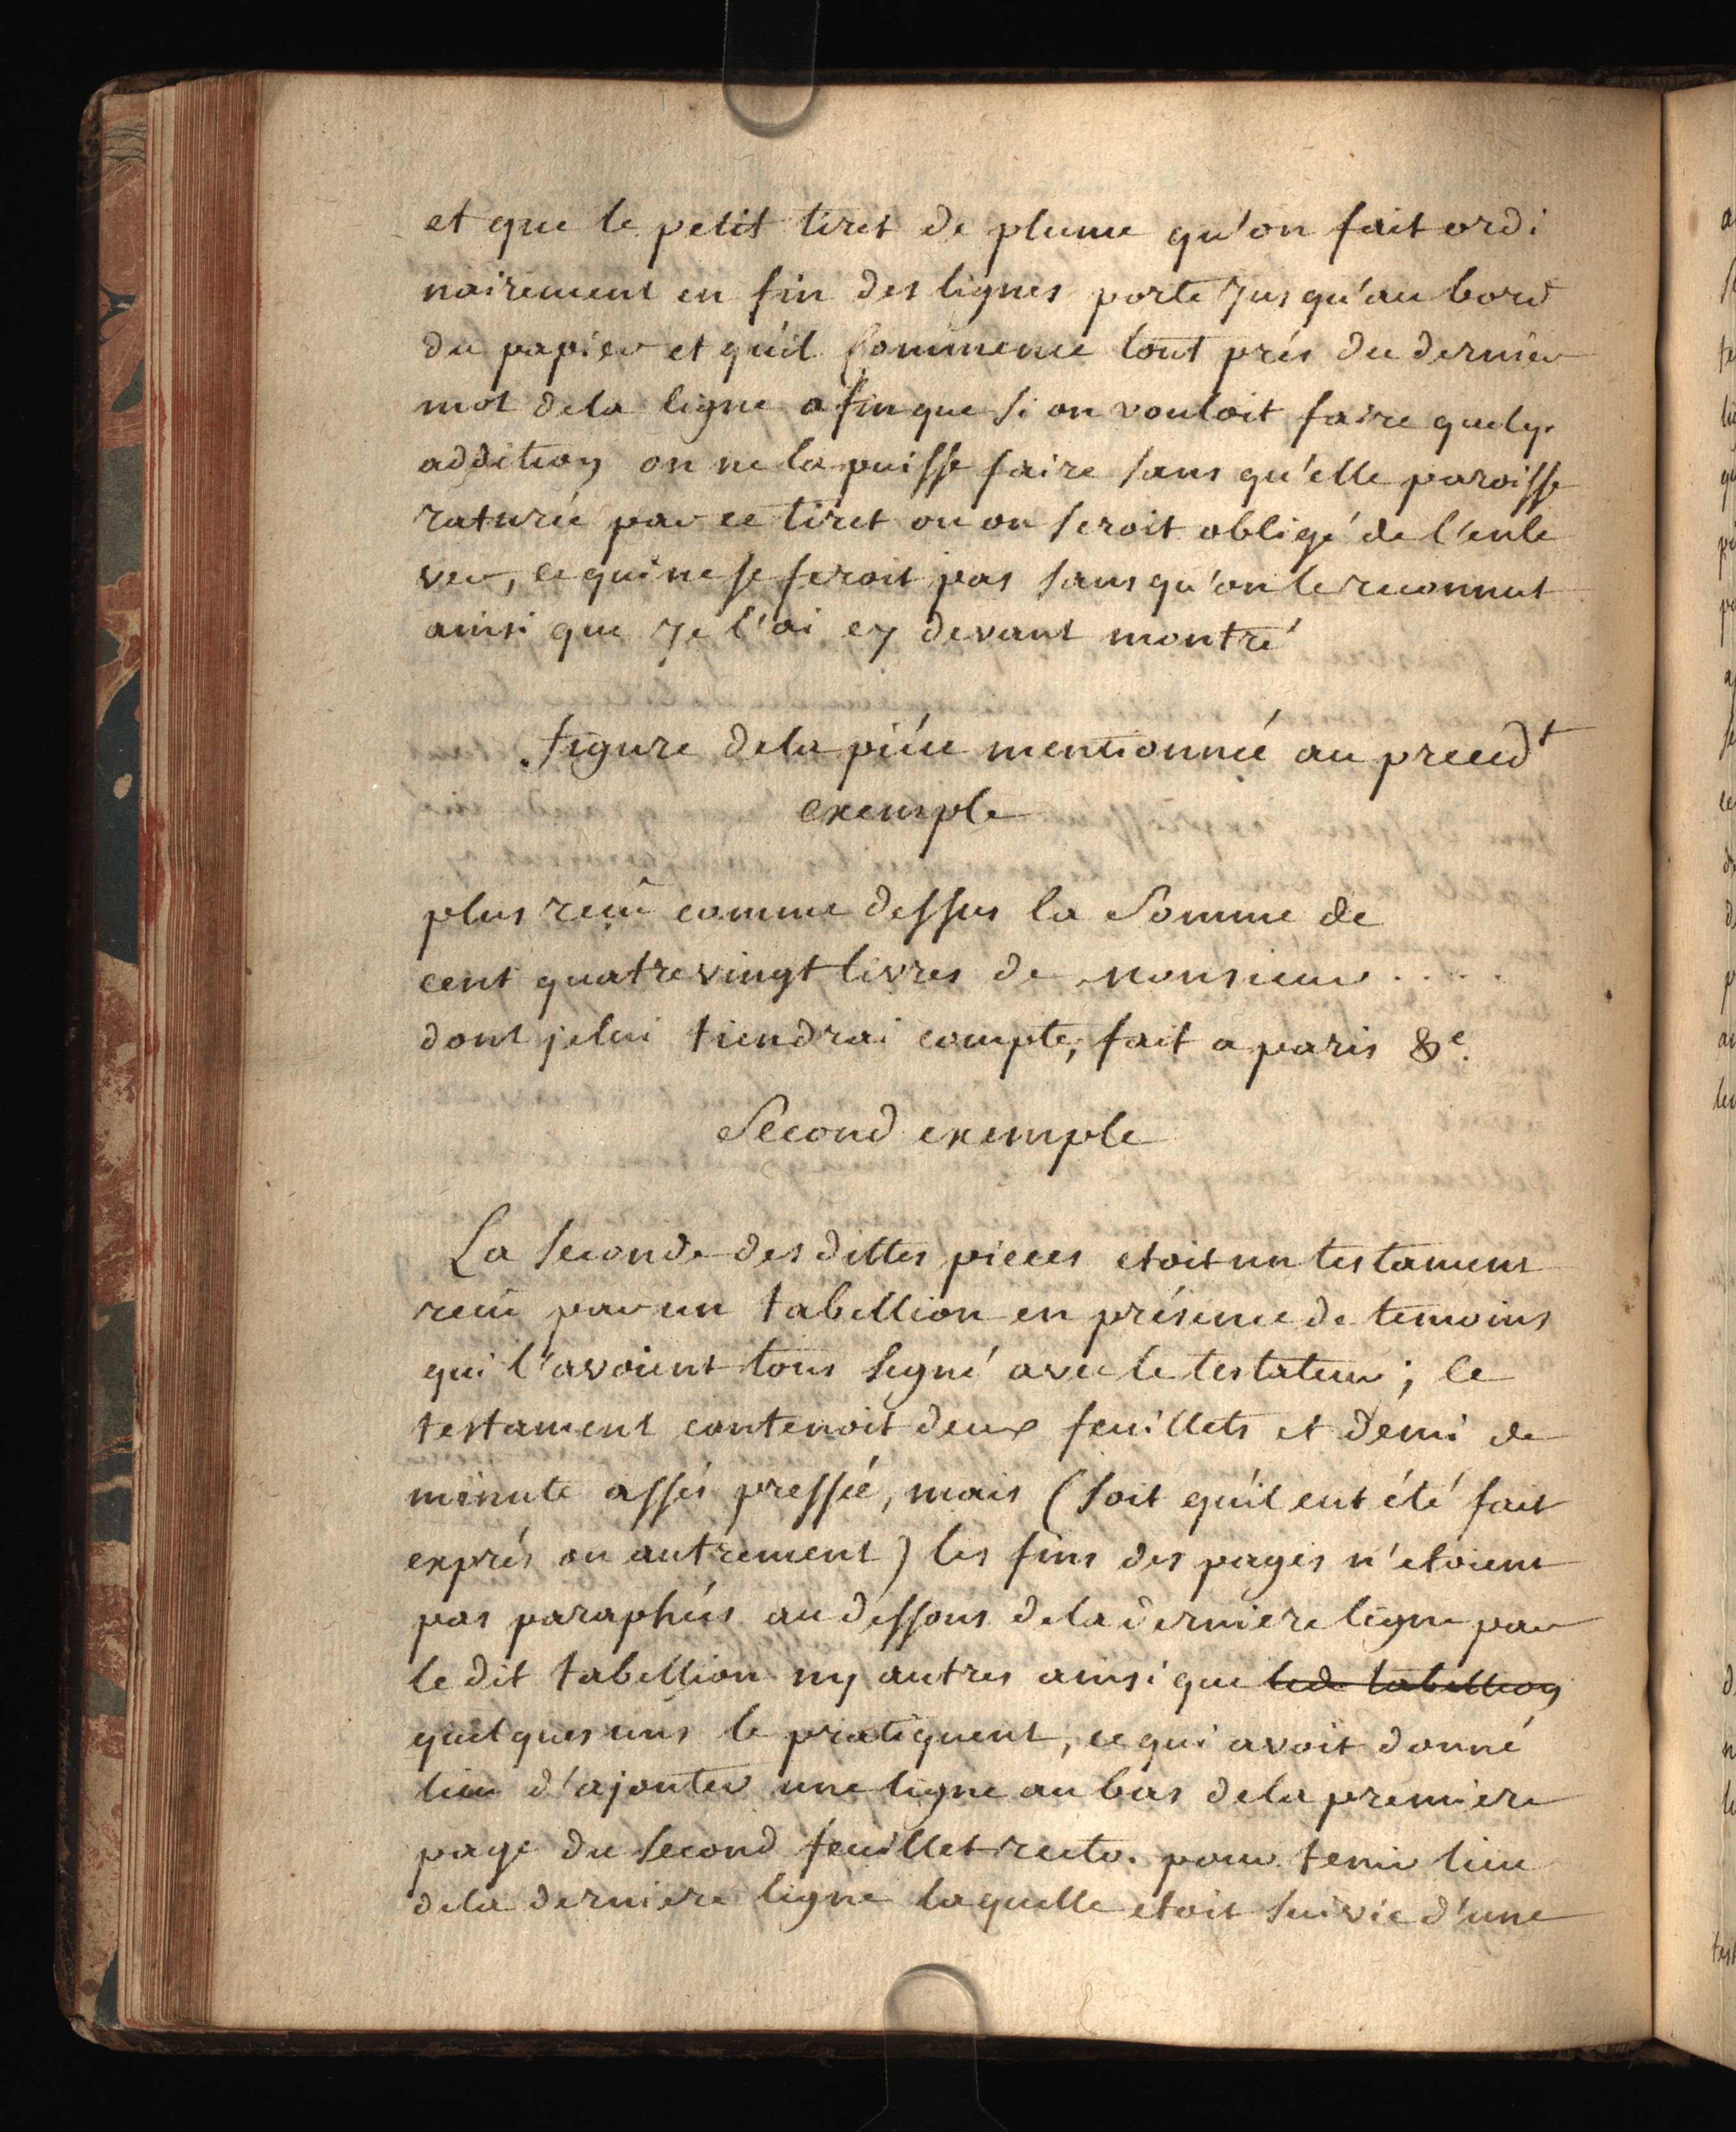 et que le petit tiret de plume qu'on fait ordi
nairement en fin des lignes porte jusqu'au bord
du papier et qu'il commence tout prés du dernier
mot de la ligne afin que si on vouloit faire quelq.
addition on ne la puisse faire sans qu'elle paroisse
raturée par ce tiret ou on seroit obligé de l'enle
ver, ce qui ne se feroit pas sans qu'on le reconnut
ainsi que je l'ai cy devant montré
figure de la piéce mentionnée au preced.t
exemple
plus reçû comme dessus la Somme de
cent quatre vingt livres de Monsieur . . . .
dont je lui tiendrai compte, fait a paris &c.
Second exemple
La seconde des dittes pieces etoit un testament
reçû par un tabellion en présence de temoins
qui l'avoient tous signé avec le testateur ; ce
testament contenoit deux feuillets et demi de
minute assés pressée, mais (soit qu'il eut été fait
exprés ou autrement) les fins des pages n'etoient
pas paraphées au dessous de la derniere ligne par
le dit tabellion ny autres ainsi que led. tabellion
quelques uns le pratiquent, ce qui avoit donné
lieu d'ajouter une ligne au bas de la premiere
page du second feuillet recto. pour tenir lieu
de la derniere ligne laquelle etoit suivie d'une